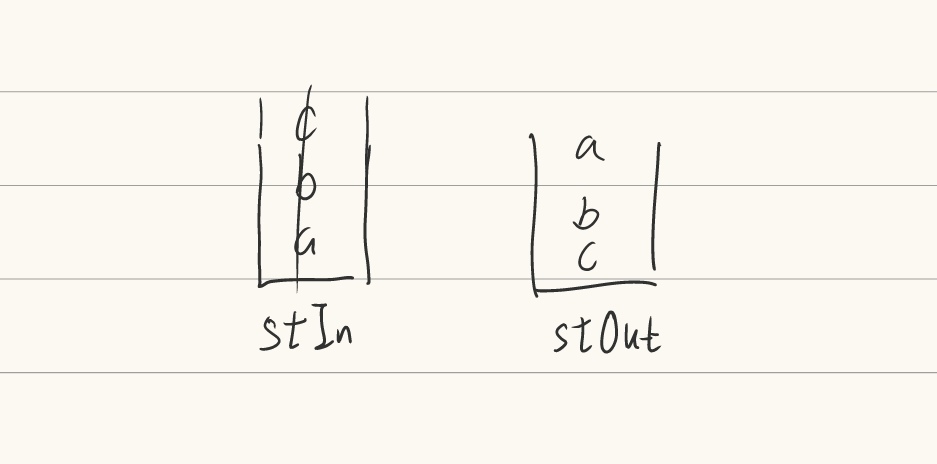 c
b
a
stIn
a
b
c
stOut